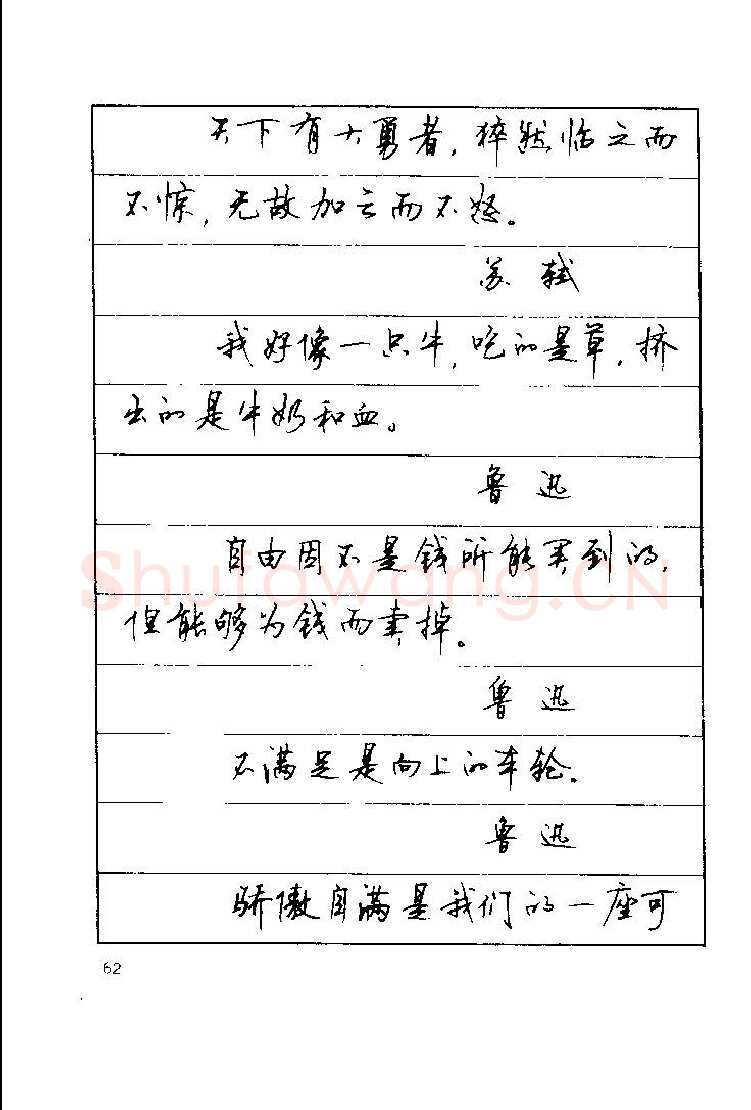 天下有大勇者，猝然临之而
不惊，无故加之而不怒。
苏轼
我好像一只牛，吃的是草，挤
出的是牛奶和血。
鲁迅
自由固不是钱所能买到的，
但能够为钱而卖掉。
鲁迅
不满足是向上的车轮。
鲁迅
骄傲自满是我们的一座可
62
Shufawang.CN